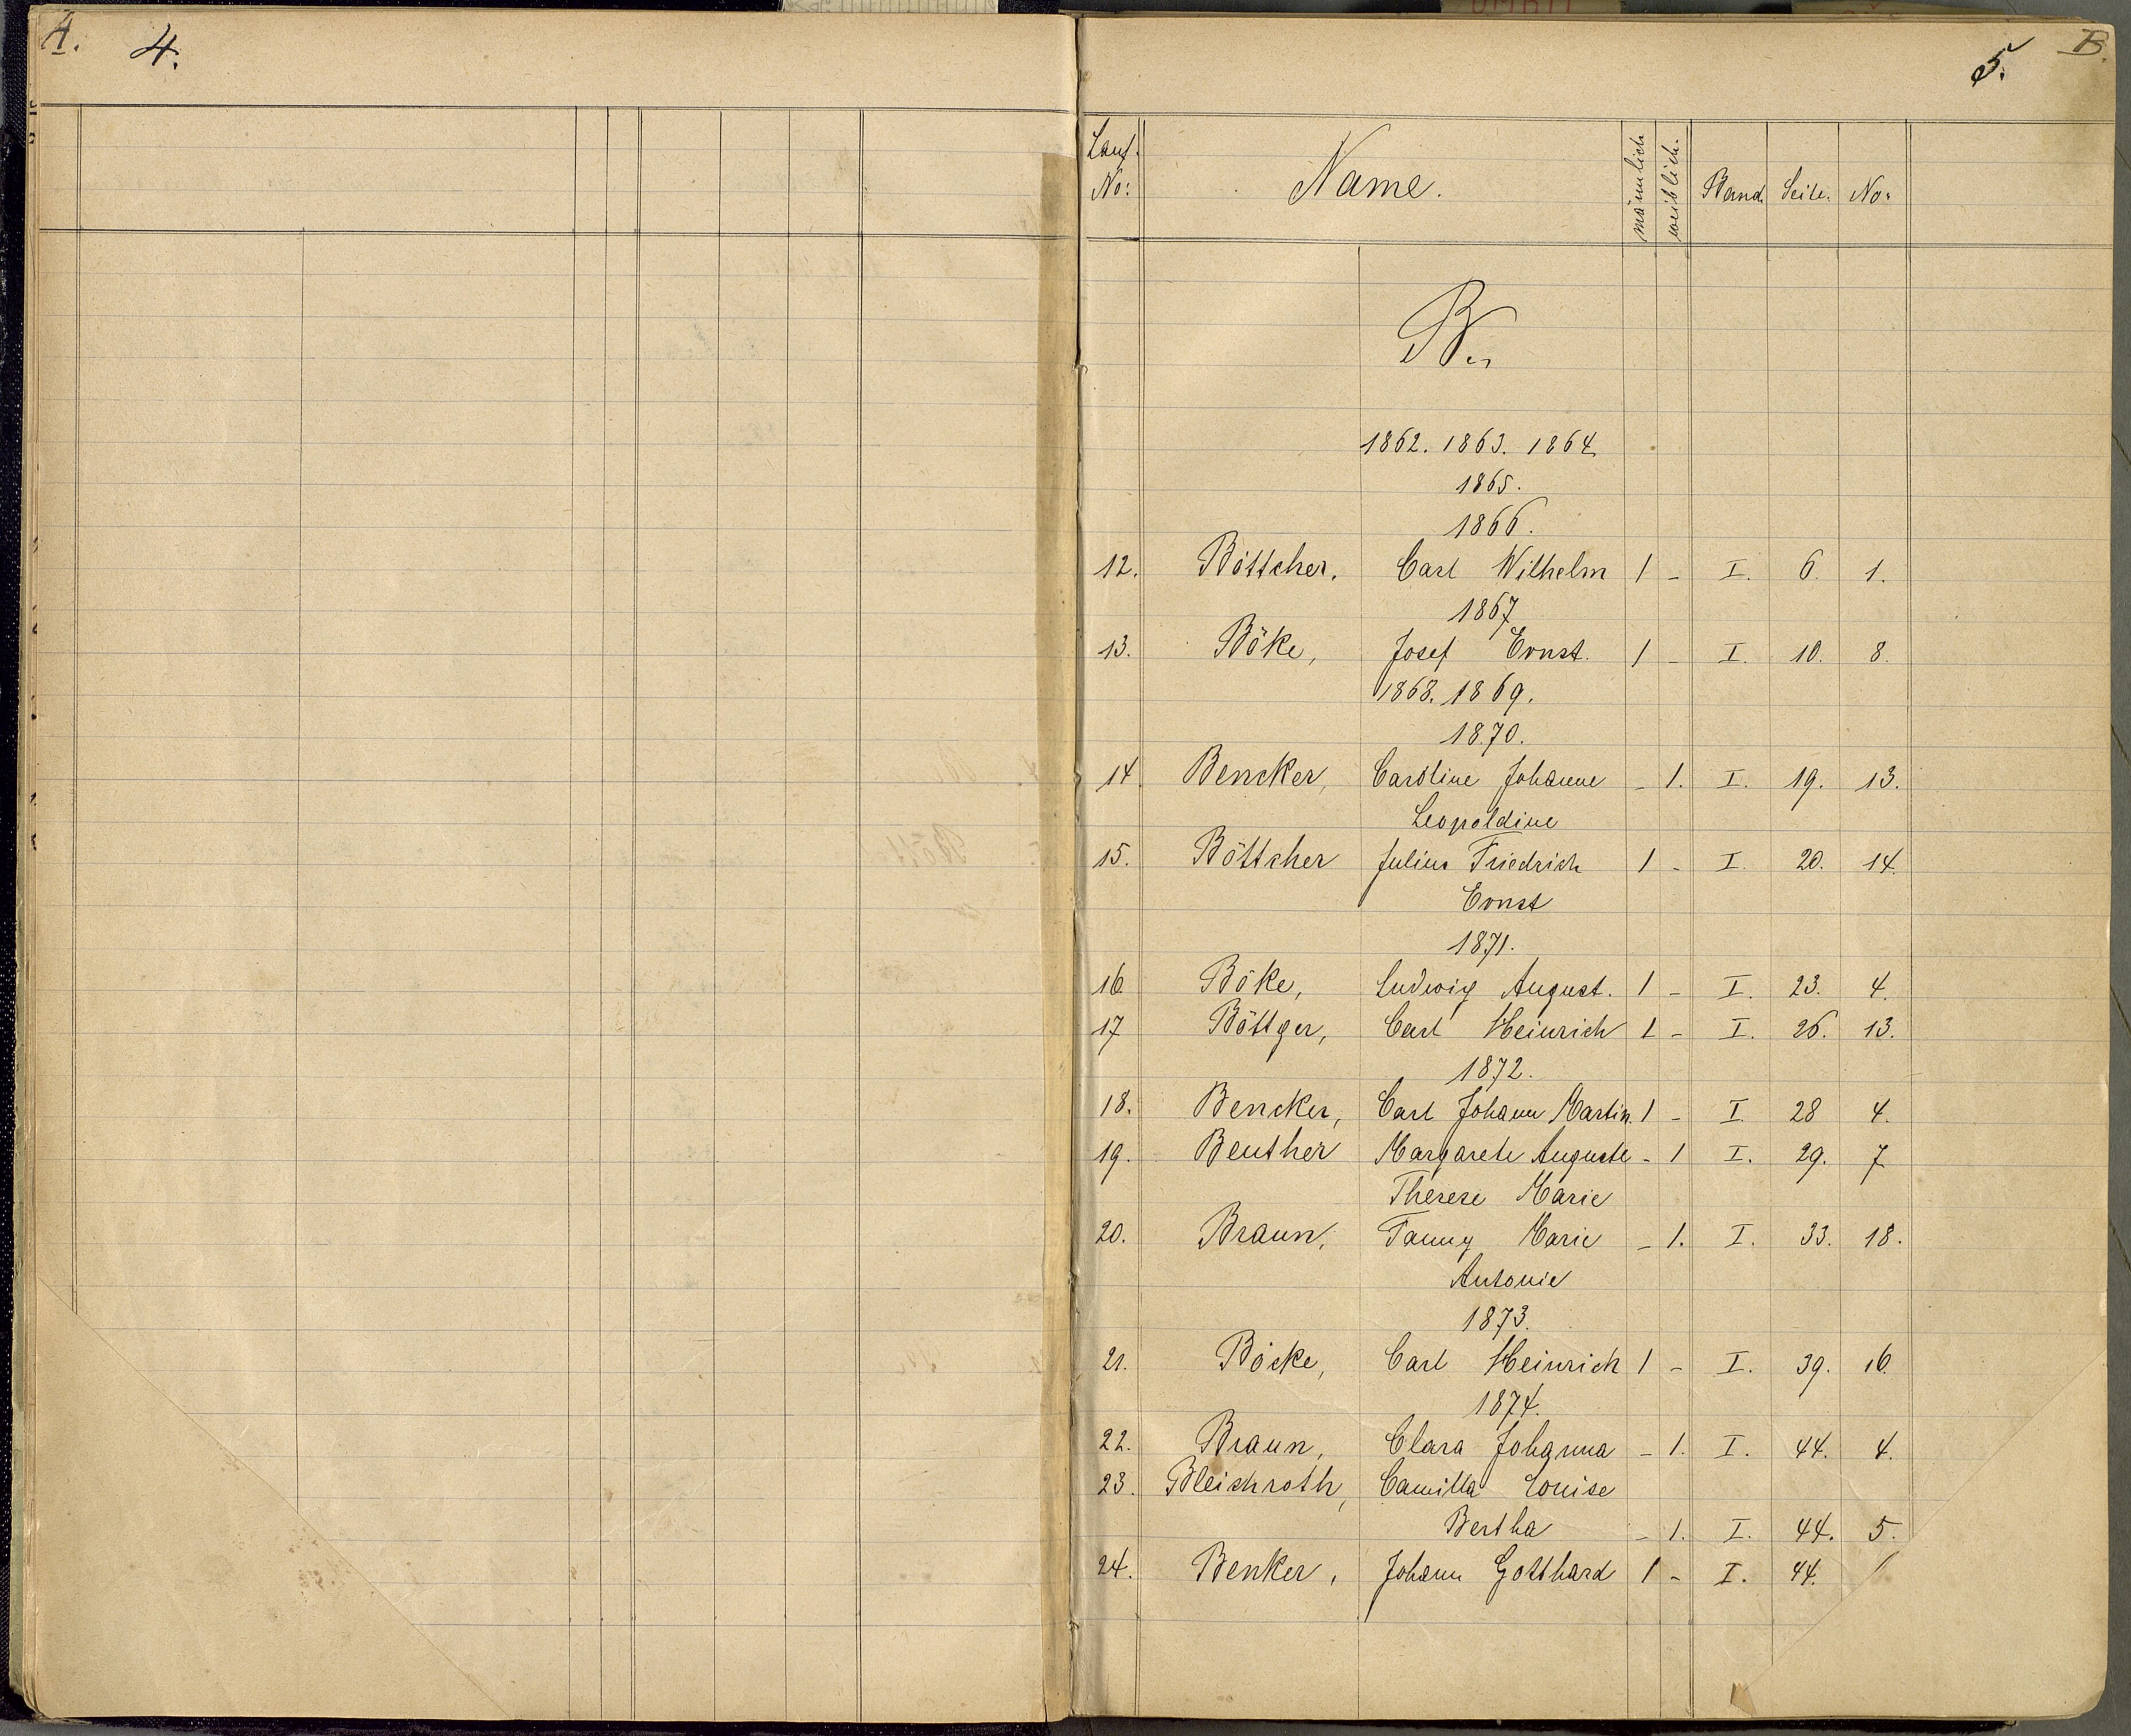 A. 4.
5. B.
Lauf. No: Name. männlich weiblich. Band. Seite. No:
B.
1862. 1863. 1864.
1865.
1866.
12. Böttcher, Carl Wilhelm 1 - I. 6. 1.
1867
13. Böke, Josef Ernst. 1 - I. 10. 8.
1868. 1869.
1870.
14. Bencker, Caroline Johanne - 1. I. 19. 13.
Leopoldine
15. Böttcher Julius Friedrich 1 - I. 20. 14.
Ernst
1871.
16. Böke, Ludwig August. 1 - I. 23. 4.
17 Böttger, Carl Heinrich 1 - I. 26. 13.
1872.
18. Bencker, Carl Johann Martin. 1 - I. 28 4.
19. Beuther Margarete Auguste - 1 I. 29. 7
Therese Marie
20. Braun, Fanny Marie - 1. I. 33. 18.
Antonie
1873.
21. Böcke, Carl Heinrich 1 - I. 39. 16.
1874.
22. Braun, Clara Johanna - 1. I. 44. 4.
23. Bleichroth, Camilla Louise
Bertha - 1. I. 44. 5.
24. Benker, Johann Gotthard 1 - I. 44.